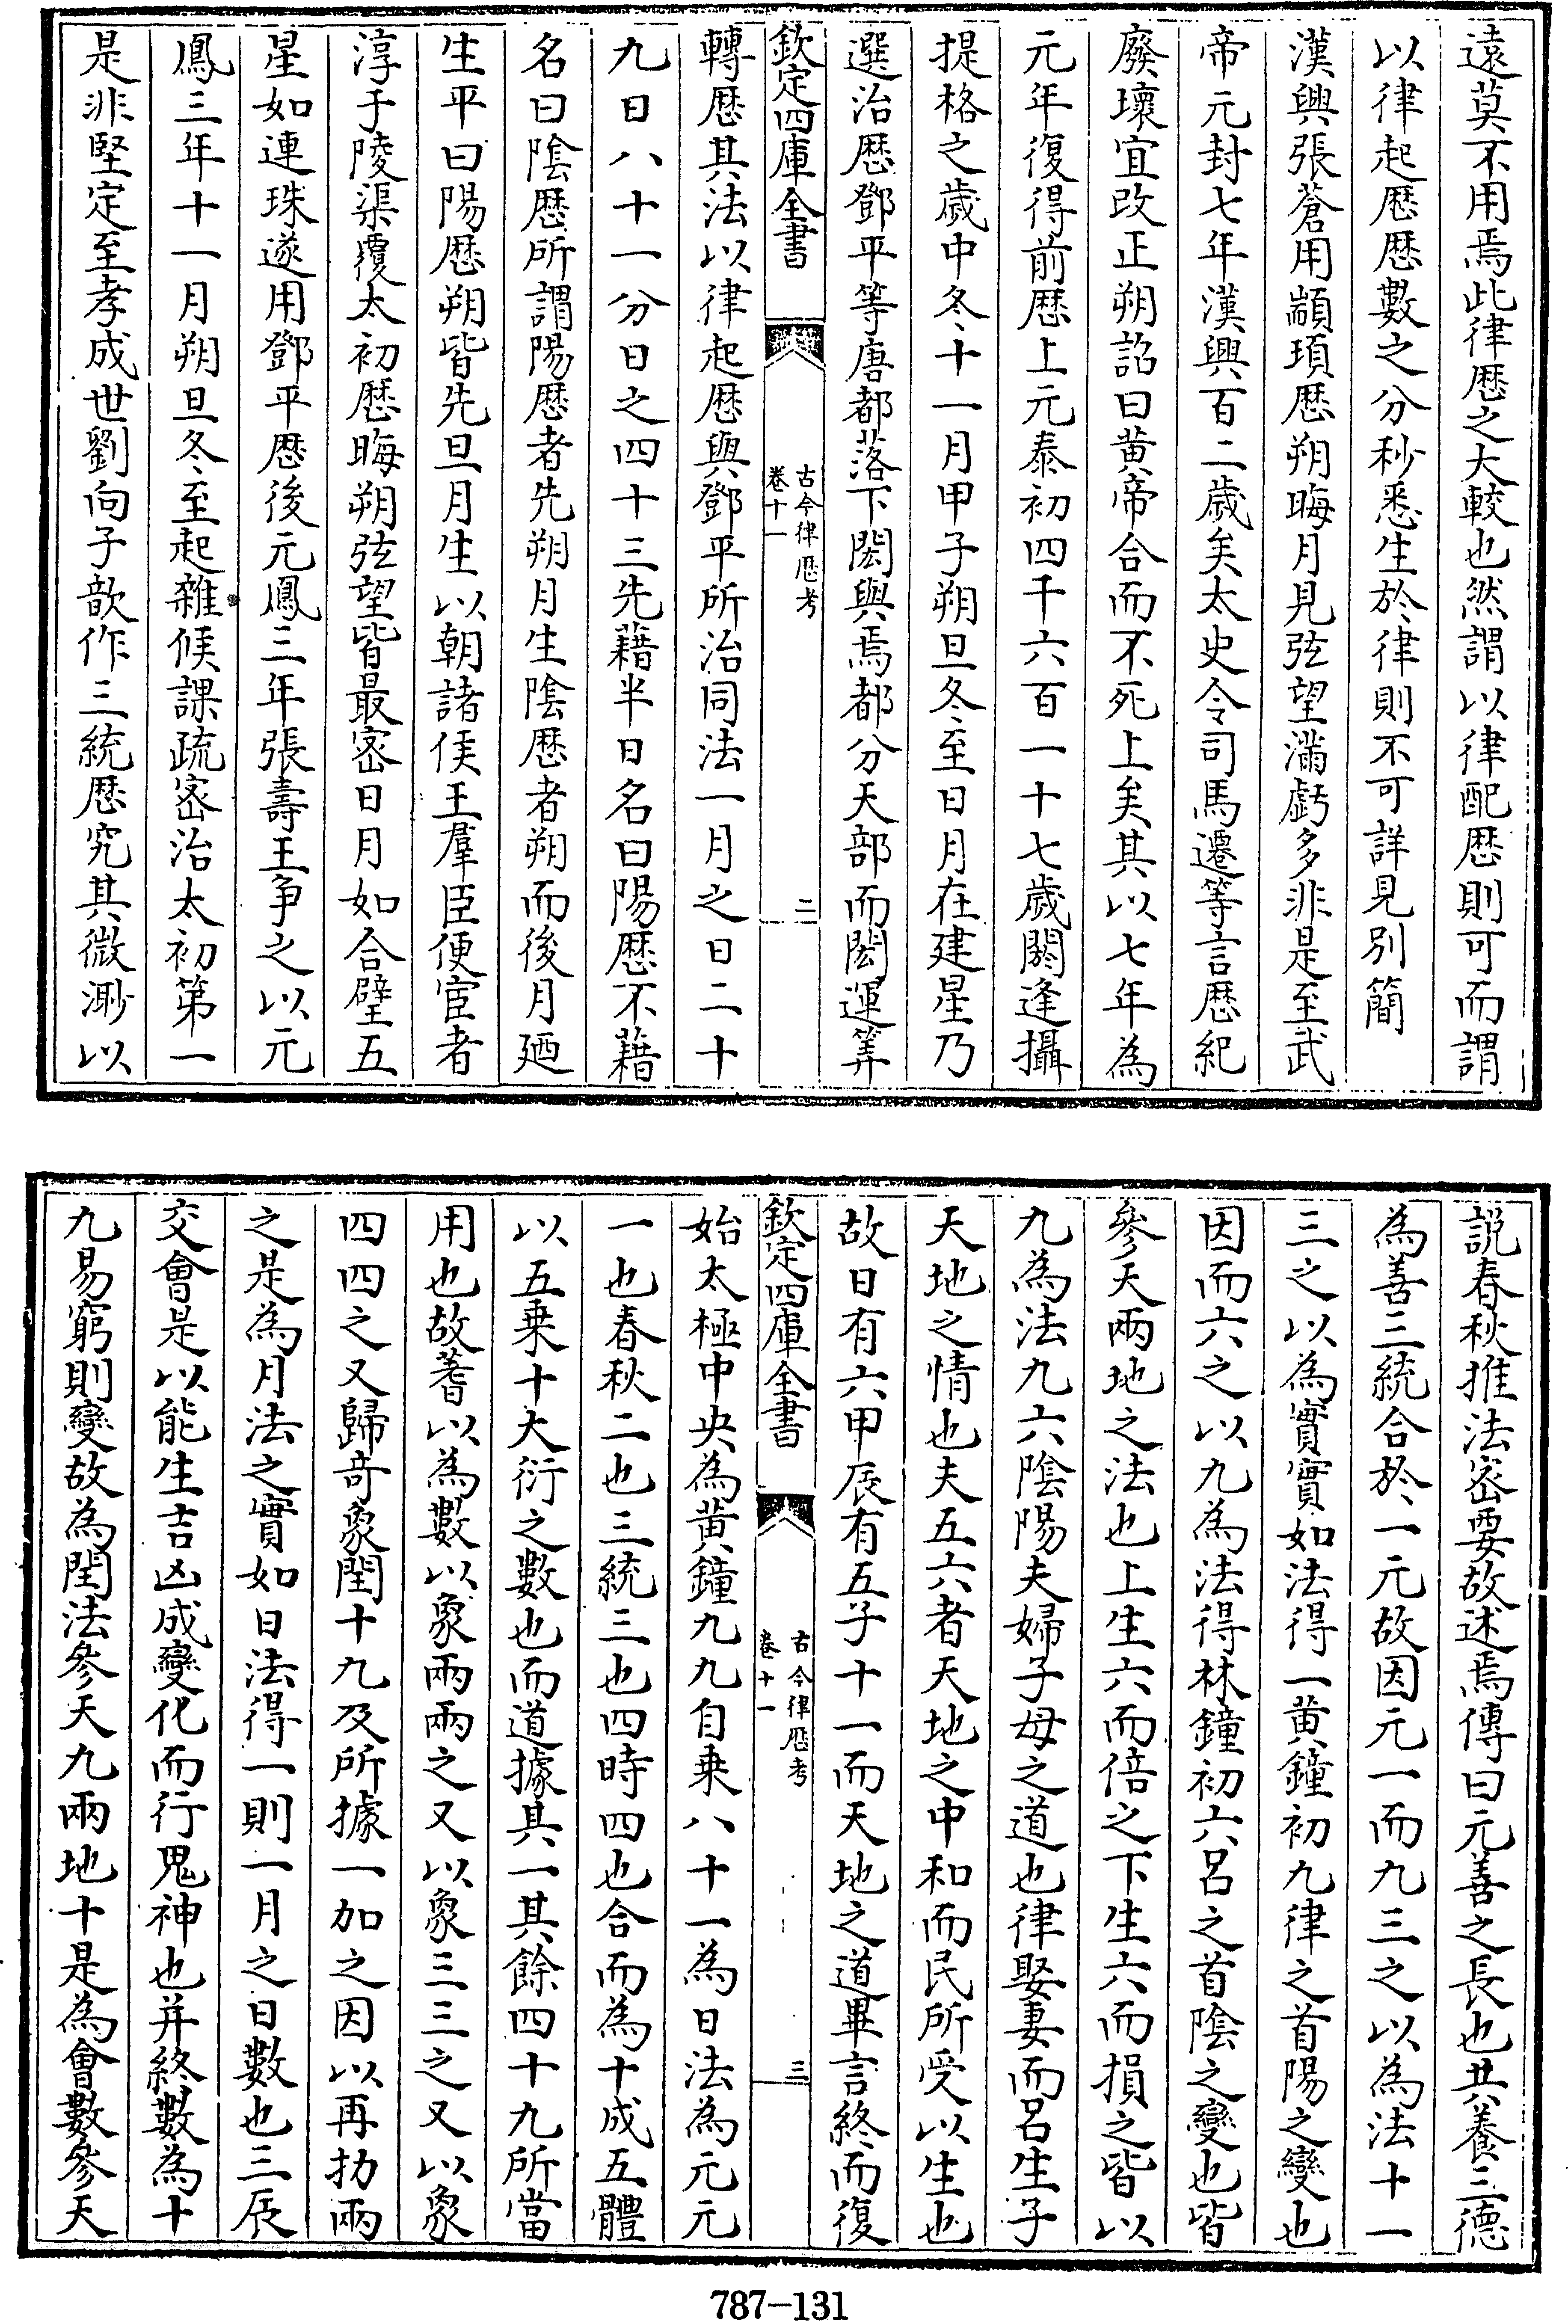 遠莫不用焉此律厯之大較也然謂以律配厯則可而謂
以律起厯厯數之分秒悉生於律則不可詳見別簡
漢興張蒼用顓頊厯朔晦月見弦望滿虧多非是至武
帝元封七年漢興百二歲矣太史令司馬遷等言厯紀
廢壞宜改正朔詔曰黄帝合而不死上矣其以七年為
元年復得前厯上元泰初四千六百一十七歲閼逢攝
提格之歲中冬十一月甲子朔旦冬至日月在建星乃
選治厯鄧平等唐都落下閎與焉都分天部而閎運筭
欽定四庫全書
古今律厯考
卷十一
二
轉厯其法以律起厯與鄧平所治同法一月之日二十
九日八十一分日之四十三先藉半日名曰陽厯不藉
名曰陰厯所謂陽厯者先朔月生陰厯者朔而後月廼
生平曰陽厯朔皆先旦月生以朝諸侯王羣臣便宦者
淳于陵渠覆太初厯晦朔弦望皆最宻日月如合璧五
星如連珠遂用鄧平厯後元鳳三年張壽王爭之以元
鳳三年十一月朔旦冬至起雜候課疏宻治太初第一
是非堅定至孝成世劉向子歆作三統厯究其微渺以
説春秋推法宻要故述焉傳曰元善之長也共養三德
為善三統合於一元故因元一而九三之以為法十一
三之以為實實如法得一黄鐘初九律之首陽之變也
因而六之以九為法得林鐘初六呂之首陰之變也皆
參天兩地之法也上生六而倍之下生六而損之皆以
九為法九六陰陽夫婦子母之道也律娶妻而呂生子
天地之情也夫五六者天地之中和而民所受以生也
故日有六甲辰有五子十一而天地之道畢言終而復
欽定四庫全書
古今律厯考
卷十一
三
始太極中央為黄鐘九九自乘八十一為日法為元元
一也春秋二也三統三也四時四也合而為十成五體
以五乗十大衍之數也而道據其一其餘四十九所當
用也故蓍以為數以象兩兩之又以象三三之又以象
四四之又歸奇象閏十九及所據一加之因以再扐兩
之是為月法之實如日法得一則一月之日數也三辰
交會是以能生吉凶成變化而行鬼神也并終數為十
九易窮則變故為閏法參天九兩地十是為會數參天
787-131